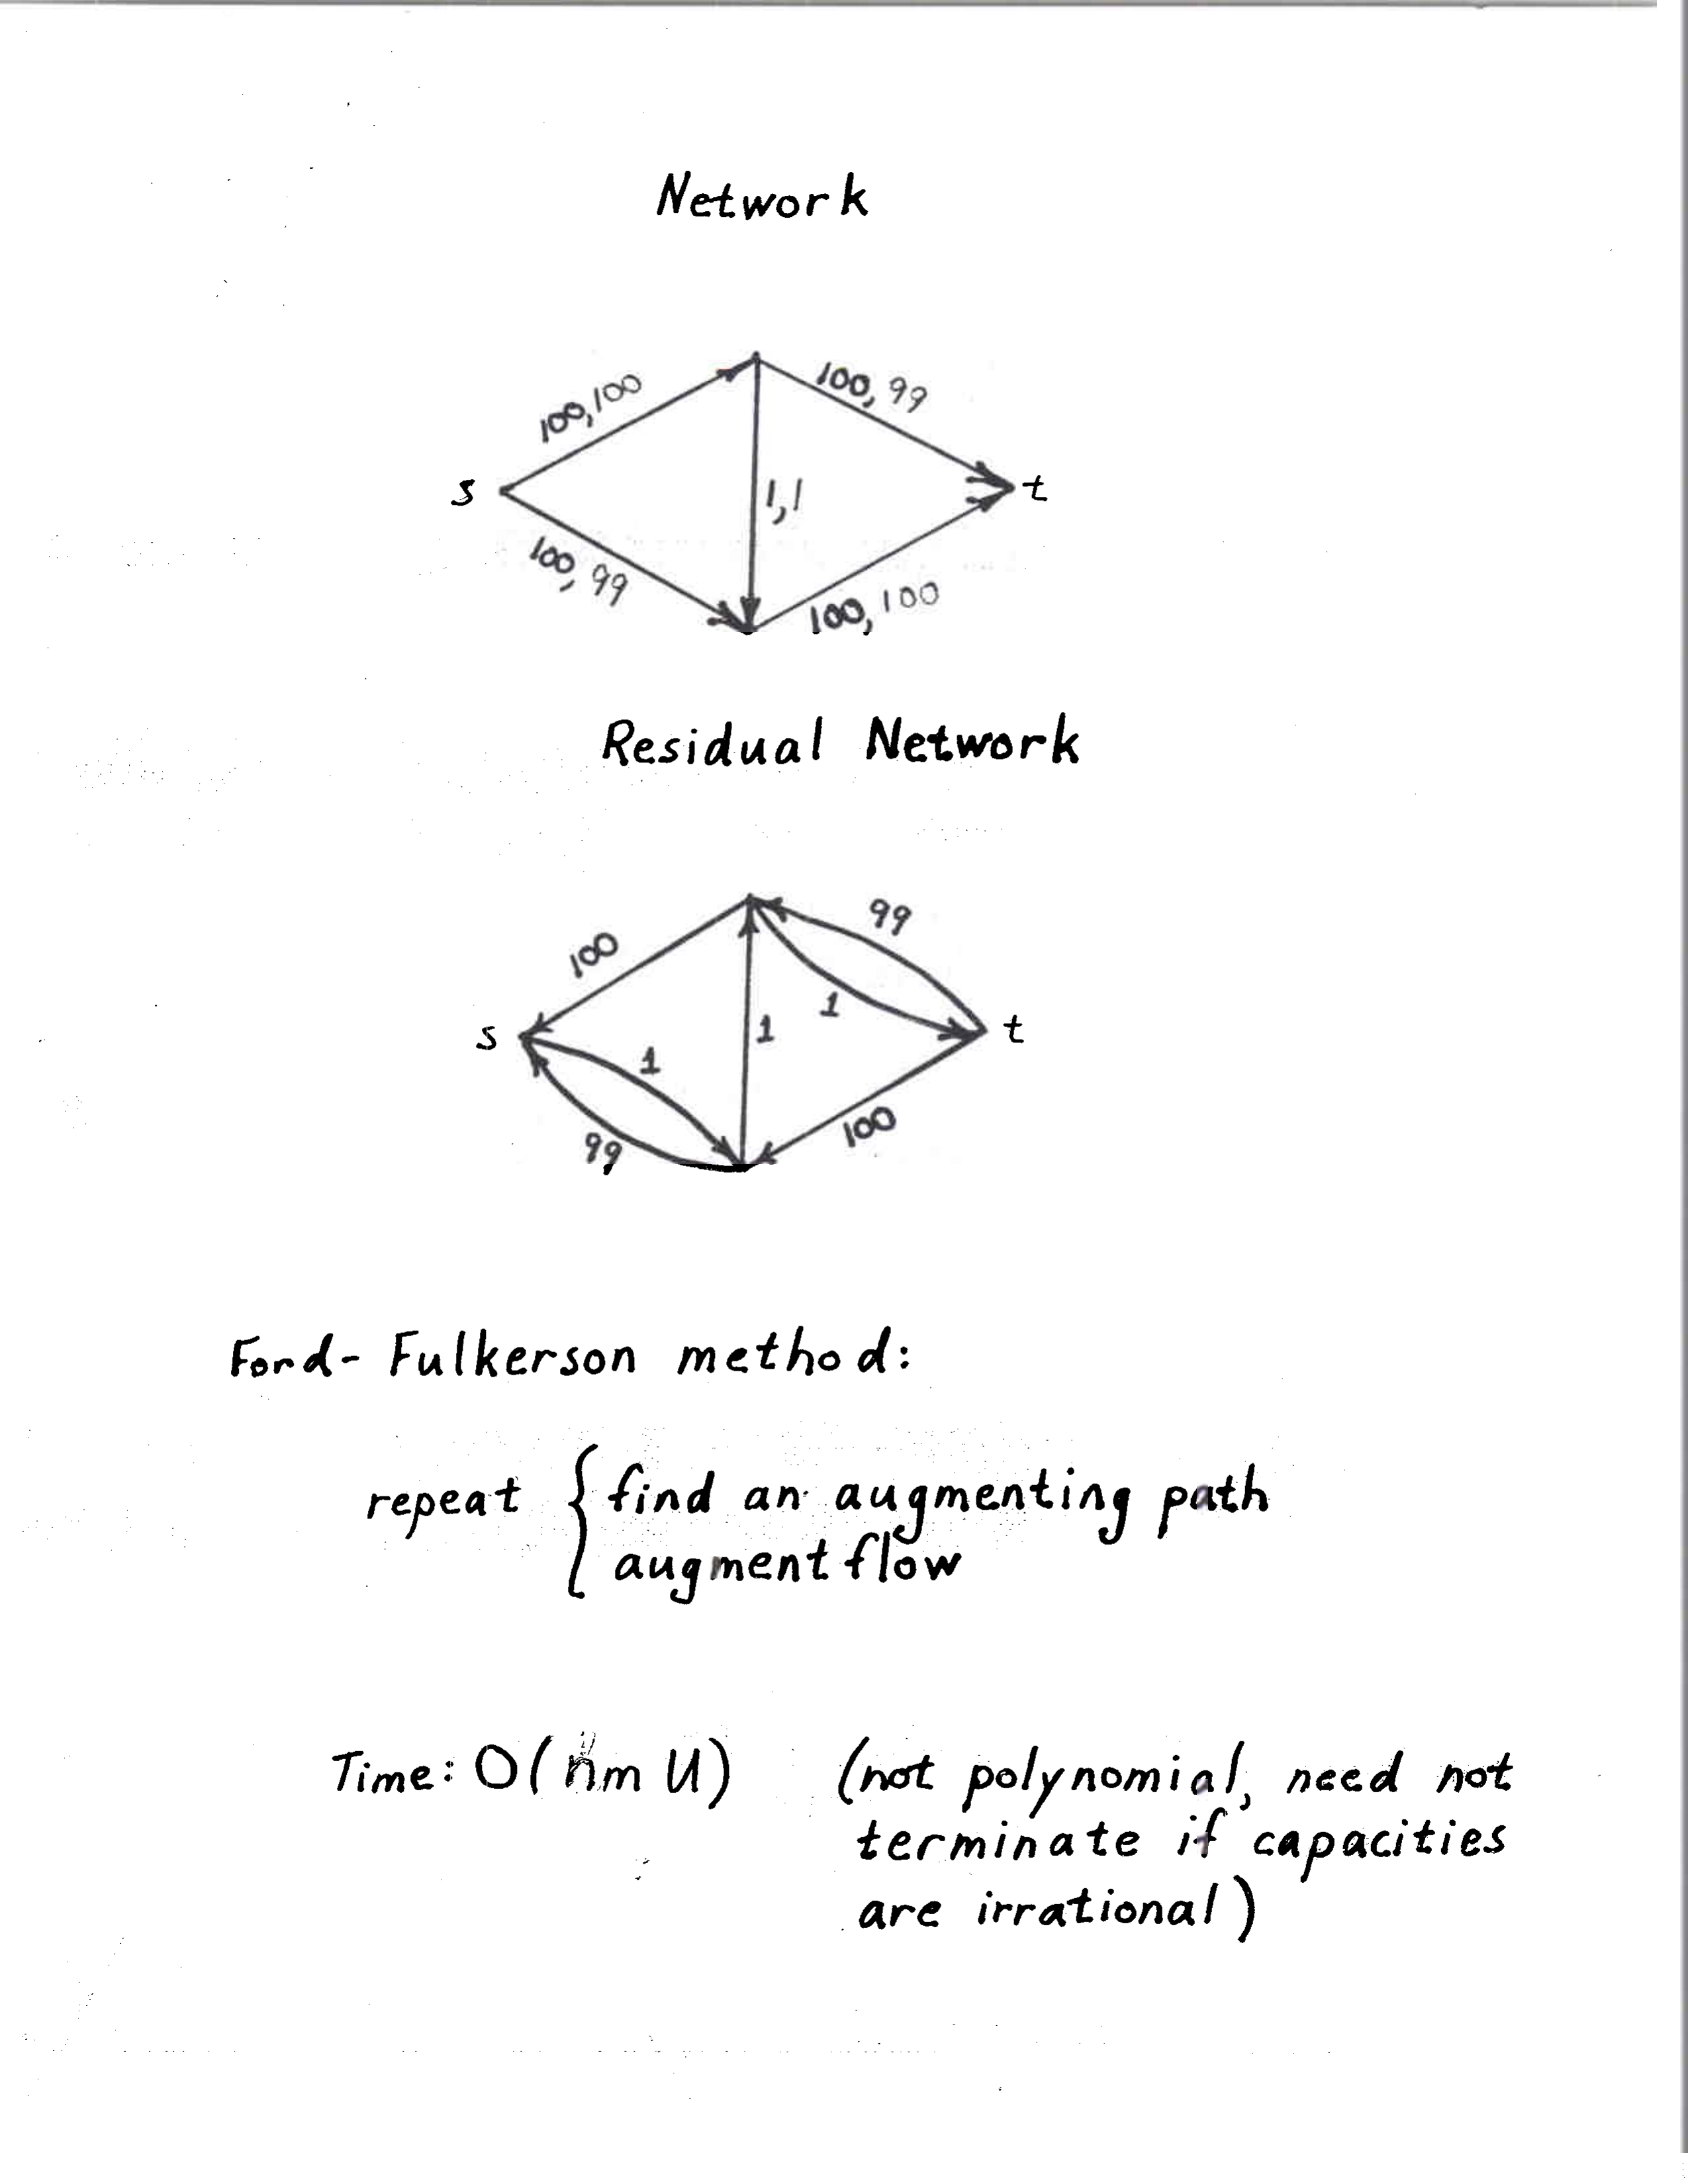 Network
100,100
100,99
s
1,1
t
100,99
100,100
Residual Network
99
100
1
s
1
1
t
99
100
Ford-Fulkerson method:
repeat { find an augmenting path
augment flow
Time: O(nm U) (not polynomial, need not
terminate if capacities
are irrational)